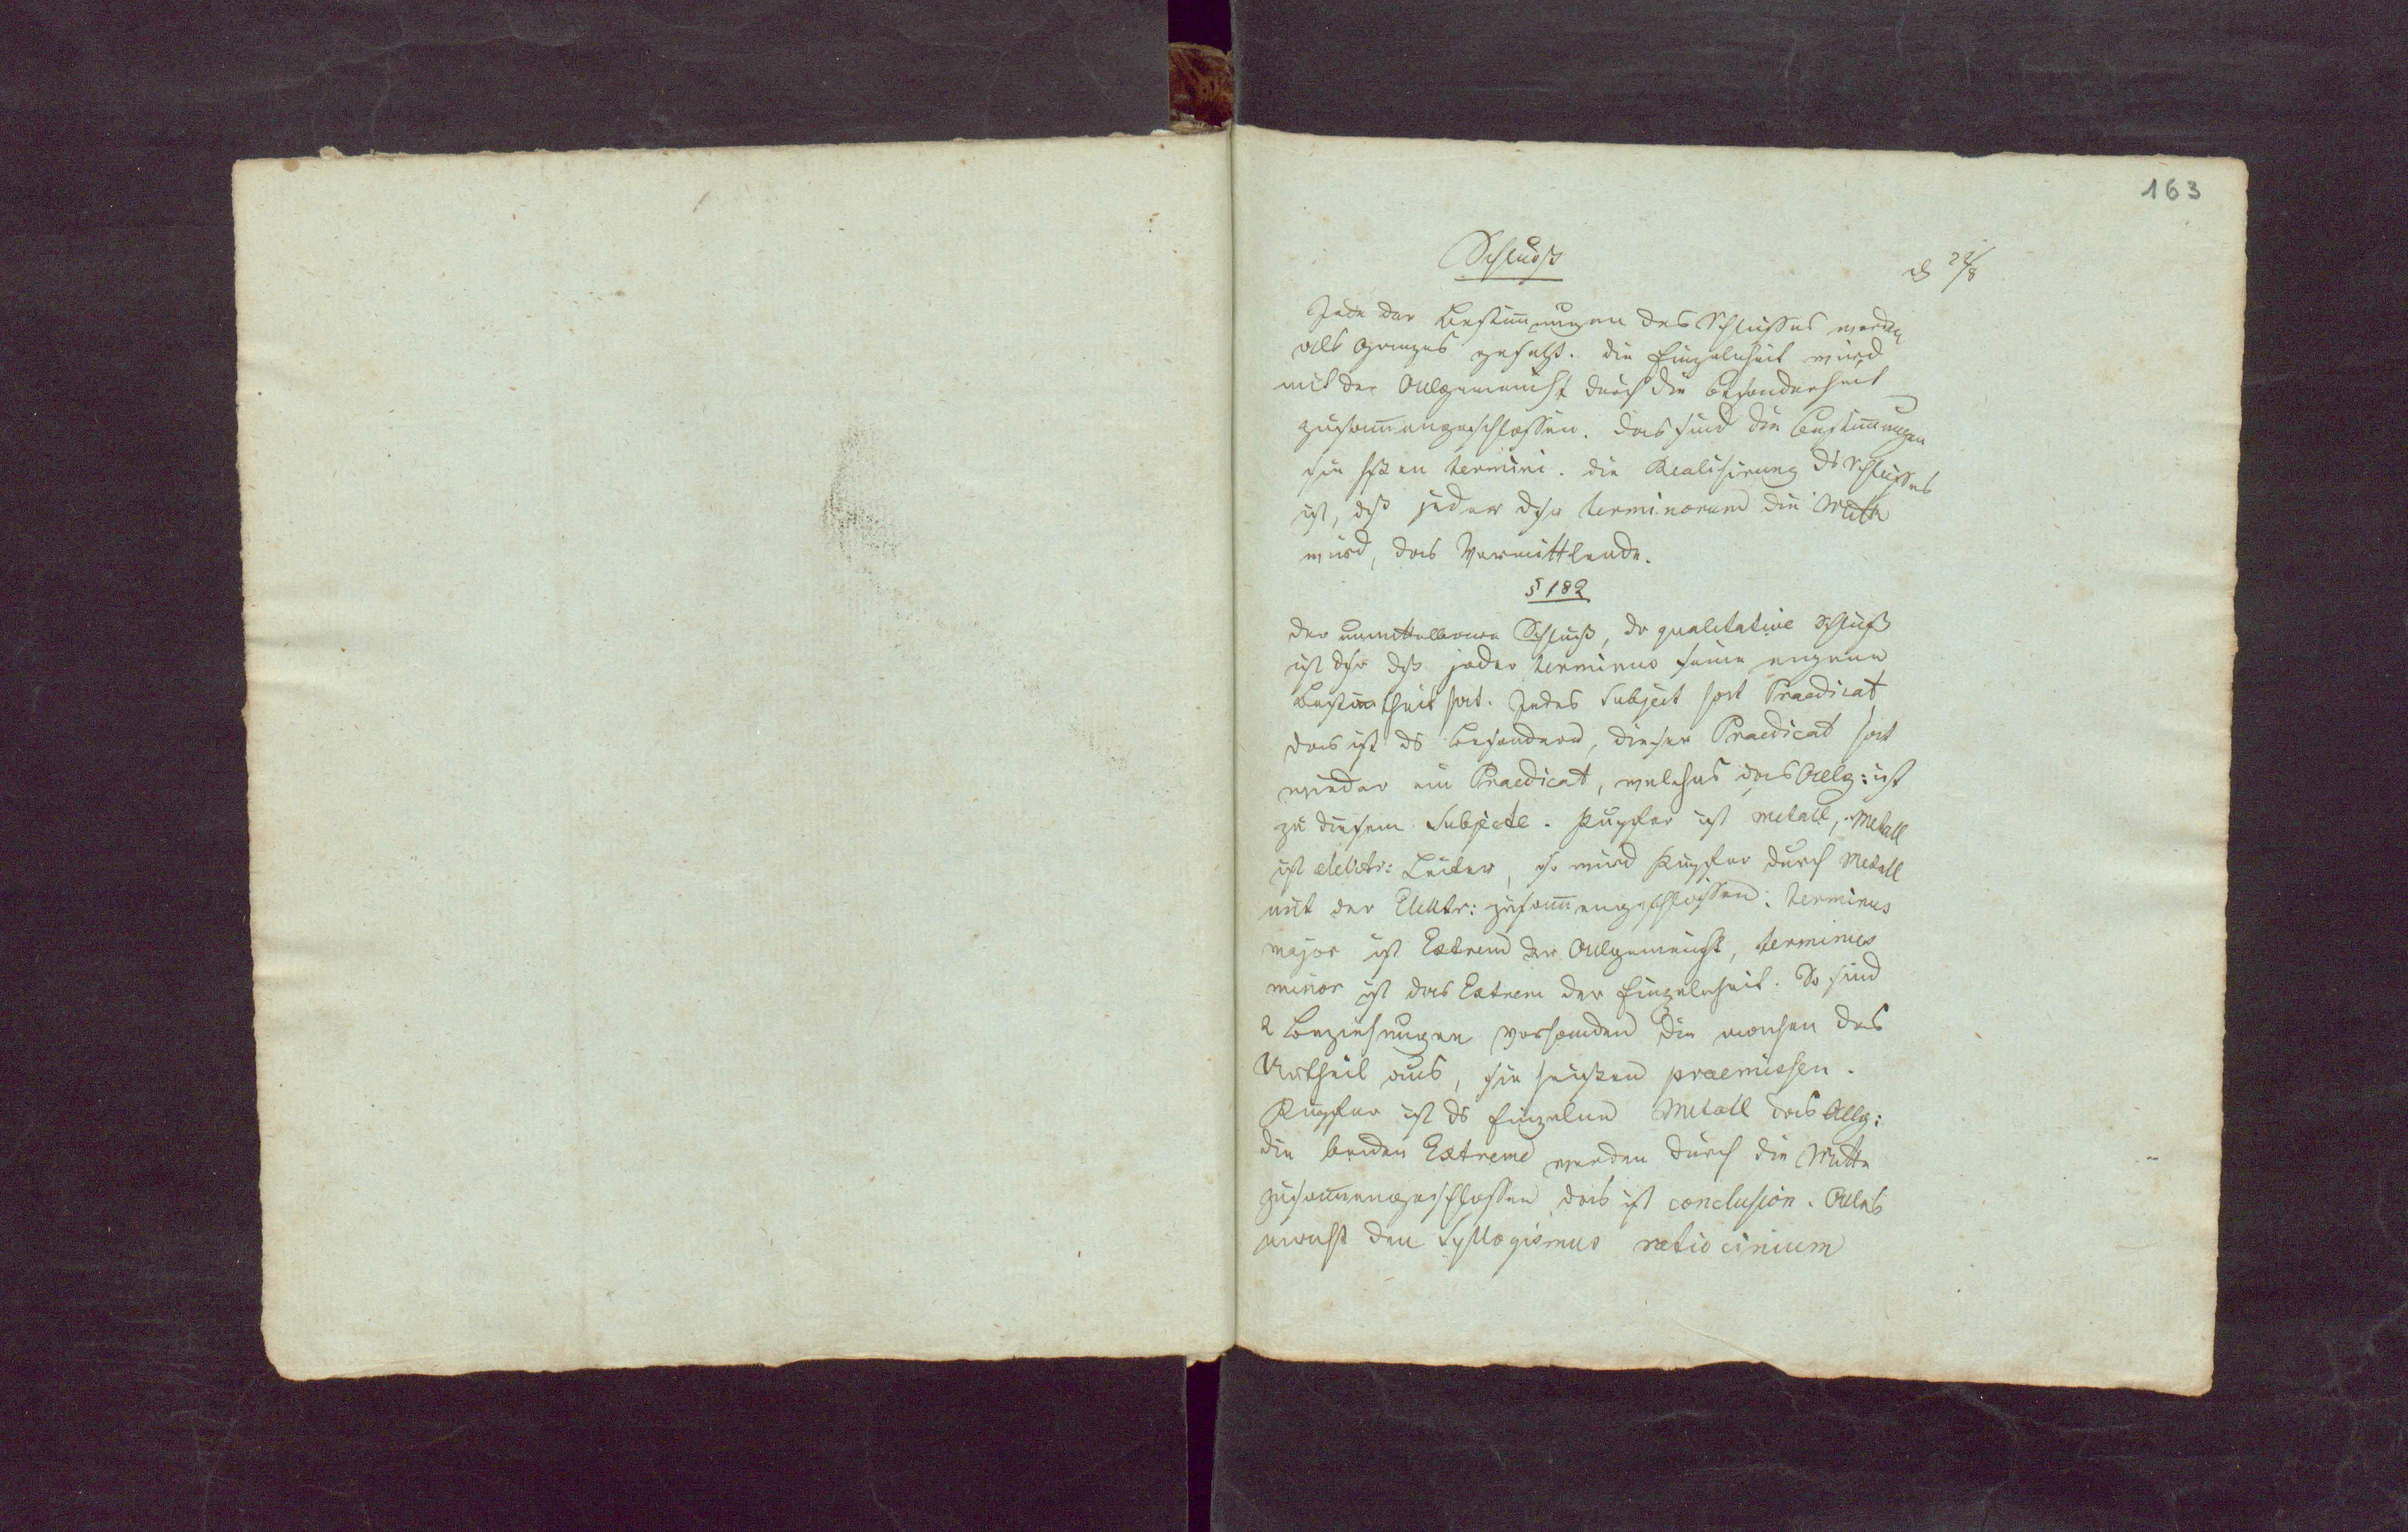 163
Schluß
d 22/8
Jede der Bestim̅ungen des Schlusses werden
als Ganzes gesetzt. die Einzelnheit wird
mit der Allgemeinht durch die Besonderheit
zusam̅engeschlossen. das sind die Bestim̅ungen
sie hßen termini. die Realisirung ds Schlusses
ist, dß jeder dsr terminorum die Mitte
wird, das Vermittlende.
§ 182
der unmittelbare Schluß, dr qualitative Schluß
ist dsr dß jeder terminus seine eigene
Bestim̅theit hat. Jedes Subject hat Praedicat
das ist ds Besondere, dieser Praedicat hat
wieder ein Praedicat, welches das Allg: ist
zu diesem Subjecte. Kupfer ist metall, Metall
ist elektr: Leiter, so wird Kupfer durch Metall
mit der Elektr: zusam̅engeschlossen: terminus
major ist Extrem der Allgemeinht, terminus
minor ist das Extrem der Einzelnheit. So sind
2 Beziehungen vorhanden die machen das
Urtheil aus, sie heißen praemissen.
Kupfer ist ds Einzelne Metall das Allg:
die beiden Extreme werden durch die Mitte
zusam̅engeschlossen das ist conclusion. Alles
macht den Syllogismus ratiocinium